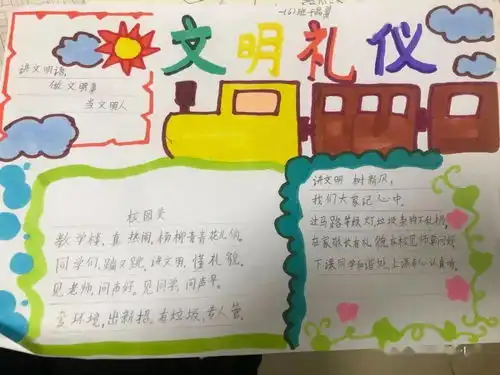 一(6)班
文明礼仪
讲文明语,
做文明事
当文明人
校园美
教学楼,真热闹,杨柳青青花儿俏。
同学们,蹦又跳,讲文明,懂礼貌。
见老师,问声好。见同学,问声早。
爱环境,出新招,看垃圾,专人管。
讲文明 树新风,
我们大家记心中。
过马路等绿灯,垃圾
在家敬长有礼貌,在校见师要问好
下课同学